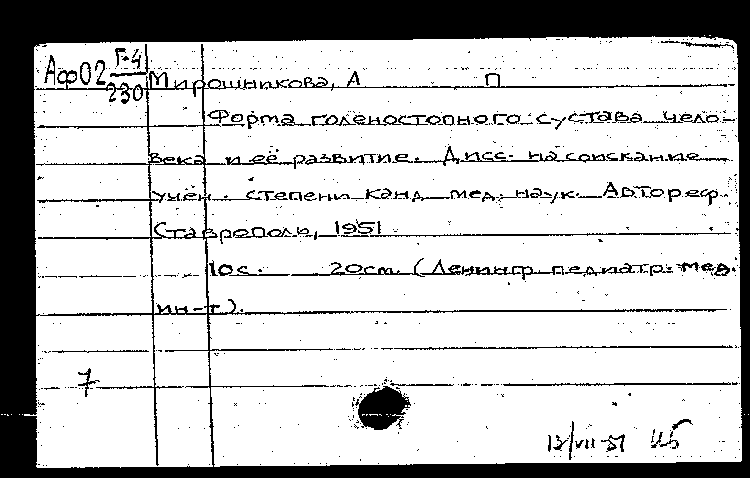 АфО2 Г-4/230 Мирошникова, А П
Форма голеностопного сустава чело-
века и её развитие. Дисс. на соискание
учен. степени канд. мед. наук. Автореф.
Ставрополь, 1951
10с. 20см. (Ленингр. педиатр. мед.
ин-т).
7
13/VII-51 ИБ